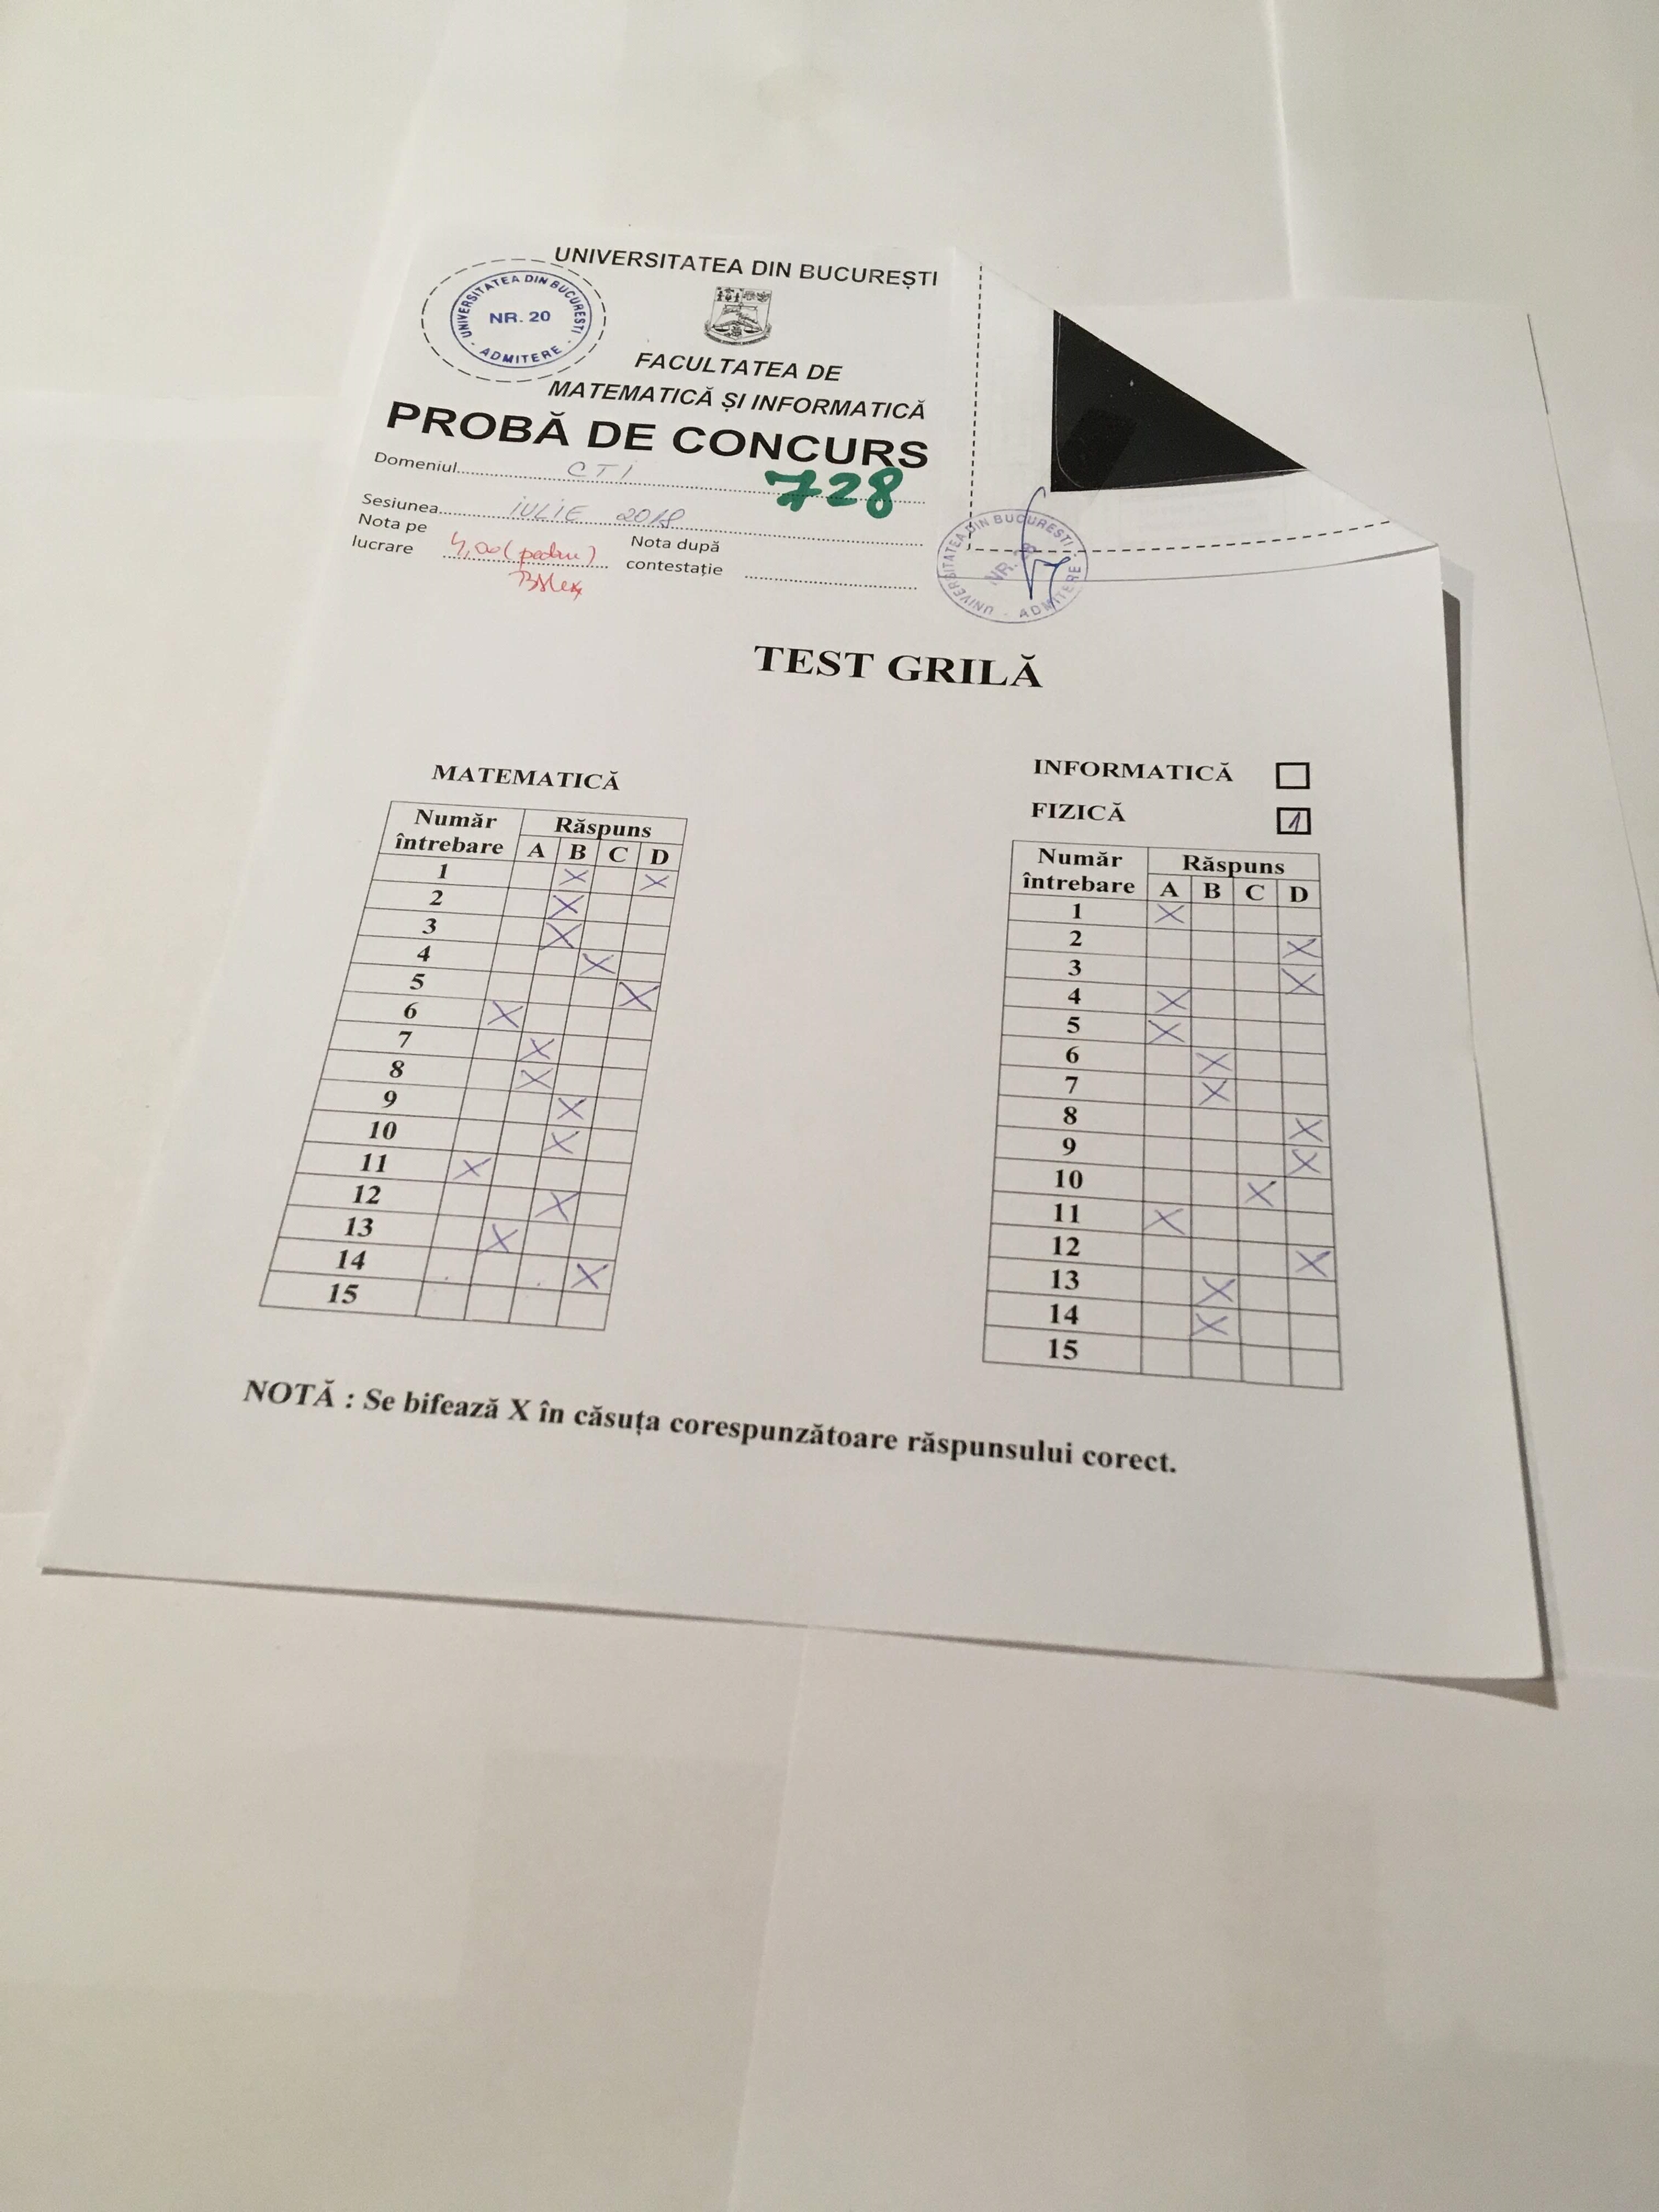 UNIVERSITATEA DIN BUCUREȘTI
UNIVERSITATEA DIN BUCURESTI
NR. 20
- ADMITERE -
FACULTATEA DE
MATEMATICĂ ȘI INFORMATICĂ
PROBĂ DE CONCURS
Domeniul.......... CTI
728
Sesiunea.......... IULIE 2018
Nota pe lucrare 4,00 (patru)
Nota după contestație ..........
UNIVERSITATEA DIN BUCURESTI
NR. 28
- ADMITERE -
TEST GRILĂ
MATEMATICĂ
Număr întrebare Răspuns
A B C D
1 X X
2 X
3 X
4 X
5 X
6 X
7 X
8 X
9 X
10 X
11 X
12 X
13 X
14 X
15
INFORMATICĂ
FIZICĂ 1
Număr întrebare Răspuns
A B C D
1 X
2 X
3 X
4 X
5 X
6 X
7 X
8 X
9 X
10 X
11 X
12 X
13 X
14 X
15
NOTĂ : Se bifează X în căsuța corespunzătoare răspunsului corect.